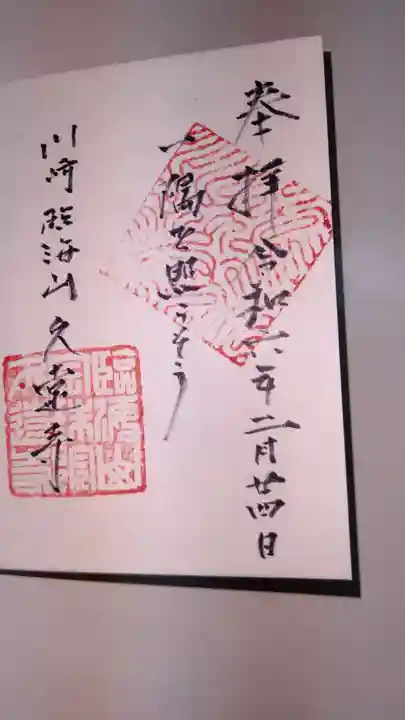 奉拝 令和六年二月廿四日
一隅を照らそう
川崎 臨海山 久遠寺